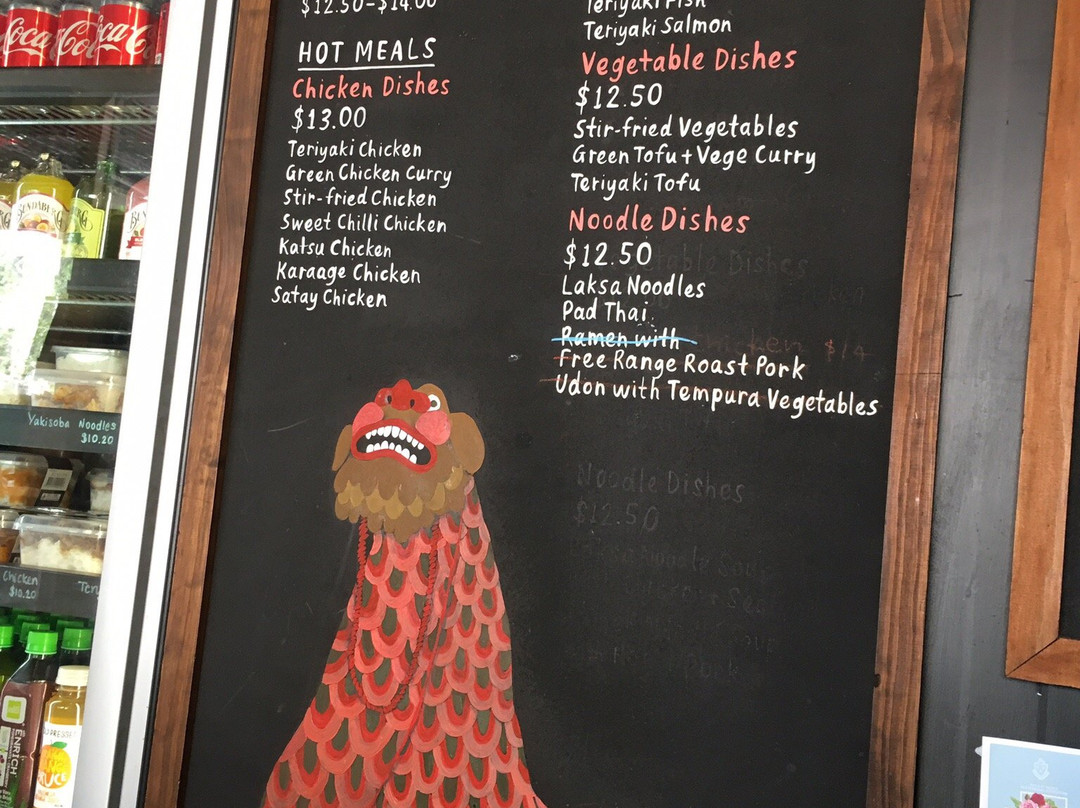 $12.50-$14.00
HOT MEALS
Chicken Dishes
$13.00
Teriyaki Chicken
Green Chicken Curry
Stir-fried Chicken
Sweet Chilli Chicken
Katsu Chicken
Karaage Chicken
Satay Chicken
Teriyaki Fish
Teriyaki Salmon
Vegetable Dishes
$12.50
Stir-fried Vegetables
Green Tofu + Vege Curry
Teriyaki Tofu
Noodle Dishes
$12.50
Laksa Noodles
Pad Thai
Ramen with
Free Range Roast Pork
Udon with Tempura Vegetables
Dishes
$14
Noodle Dishes
$12.50
Pork
Coca
Co
Coca C
Yakisoba Noodles
$10.20
Chicken
$10.20
Ter
ENRICH